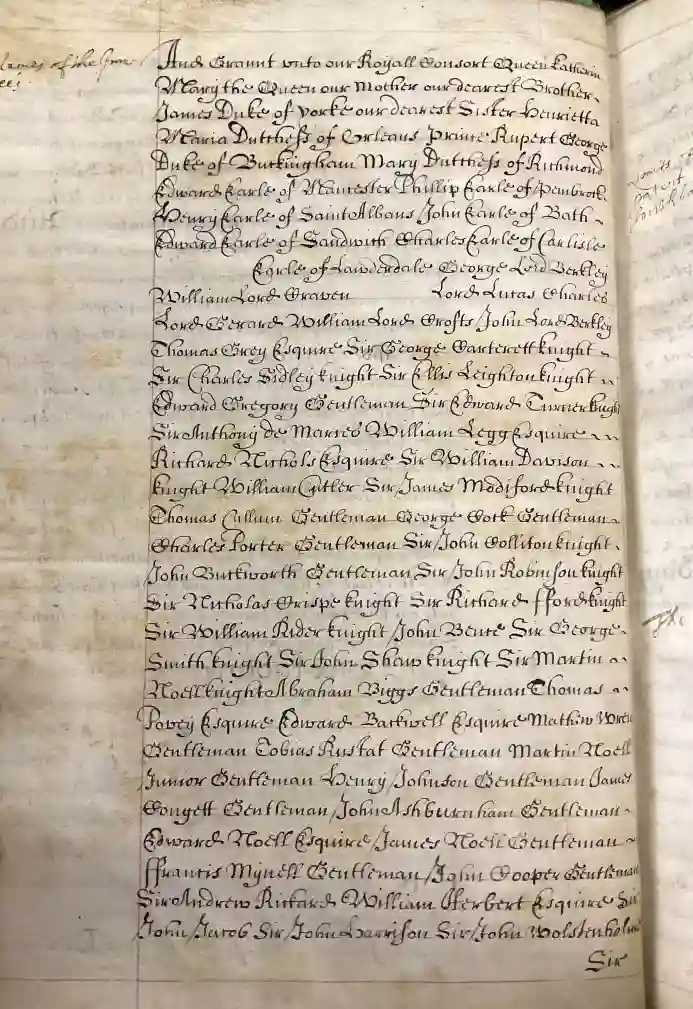 names of the Gran
ees
And Graunt unto our Royall Consort Queen Katherin
Mary the Queen our Mother our dearest Brother
James Duke of Yorke our dearest Sister Henrietta
Maria Dutchess of Orleans Prince Rupert George
Duke of Buckingham Mary Dutchess of Richmond
Edward Earle of Manchester Phillip Earle of Pembrock
Henry Earle of Saint Albans John Earle of Bath
Edward Earle of Sandwich Charles Earle of Carlisle
Earle of Lawderdale George Lord Berkley
William Lord Craven Lord Lucas Charles
Lord Gerard William Lord Crofts John Lord Berkley
Thomas Grey Esquire Sir George Carterett knight
Sir Charles Sidley knight Sir Ellis Leighton knight
Edward Gregory Gentleman Sir Edward Turner knight
Sir Anthony de Marces William Legg Esquire
Richard Nichols Esquire Sir William Davison
knight William Cutler Sir James Modiford knight
Thomas Cullum Gentleman George Cock Gentleman
Charles Porter Gentleman Sir John Colliton knight
John Buckworth Gentleman Sir John Robinson knight
Sir Nicholas Crispe knight Sir Richard fford knight
Sir William Rider knight John Bence Sir George
Smith knight Sir John Shaw knight Sir Martin
Noell knight Abraham Biggs Gentleman Thomas
Povey Esquire Edward Backwell Esquire Mathew Wren
Gentleman Tobias Rustat Gentleman Martin Noell
Junior Gentleman Henry Johnson Gentleman James
Congett Gentleman John Ashburnham Gentleman
Edward Noell Esquire James Noell Gentleman
ffrancis Mynell Gentleman John Cooper Gentleman
Sir Andrew Rickard William Herbert Esquire Sir
John Jacob Sir John Harrison Sir John Wolstenholm
Sir
The